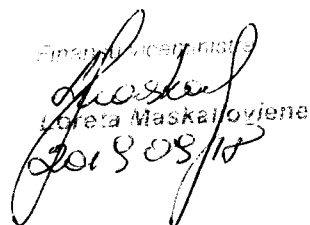 Finansų viceministrė
Loreta Maskaliovienė
2019 09 18